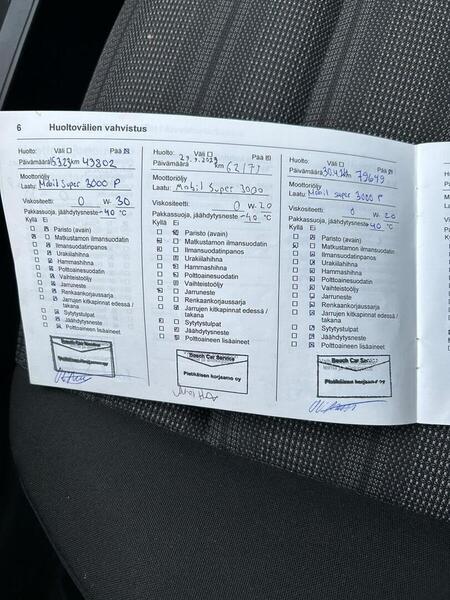 6 Huoltovälien vahvistus
Huolto: Väli Pää
Päivämäärä km 43802
Moottoriöljy
Laatu: Mobil Super 3000 P
Viskositeetti: 0 W- 30
Pakkassuoja, jäähdytysneste -40 °C
Kyllä Ei
Paristo (avain)
Matkustamon ilmansuodatin
Ilmansuodatinpanos
Urakiilahihna
Hammashihna
Polttoainesuodatin
Vaihteistoöljy
Jarruneste
Renkaankorjaussarja
Jarrujen kitkapinnat edessä /
takana
Sytytystulpat
Jäähdytysneste
Polttoaineen lisäaineet
Bosch Car Service
Pietikäisen korjaamo oy
Huolto: Väli Pää
Päivämäärä km
Moottoriöljy
Laatu: Mobil Super 3000
Viskositeetti: 0 W- 20
Pakkassuoja, jäähdytysneste -40 °C
Kyllä Ei
Paristo (avain)
Matkustamon ilmansuodatin
Ilmansuodatinpanos
Urakiilahihna
Hammashihna
Polttoainesuodatin
Vaihteistoöljy
Jarruneste
Renkaankorjaussarja
Jarrujen kitkapinnat edessä /
takana
Sytytystulpat
Jäähdytysneste
Polttoaineen lisäaineet
Bosch Car Service
Pietikäisen korjaamo oy
Huolto: Väli Pää
Päivämäärä km 79649
Moottoriöljy
Laatu: Mobil super 3000 P
Viskositeetti: 0 W- 20
Pakkassuoja, jäähdytysneste -40 °C
Kyllä Ei
Paristo (avain)
Matkustamon ilmansuodatin
Ilmansuodatinpanos
Urakiilahihna
Hammashihna
Polttoainesuodatin
Vaihteistoöljy
Jarruneste
Renkaankorjaussarja
Jarrujen kitkapinnat edessä /
takana
Sytytystulpat
Jäähdytysneste
Polttoaineen lisäaineet
Bosch Car Service
Pietikäisen korjaamo oy